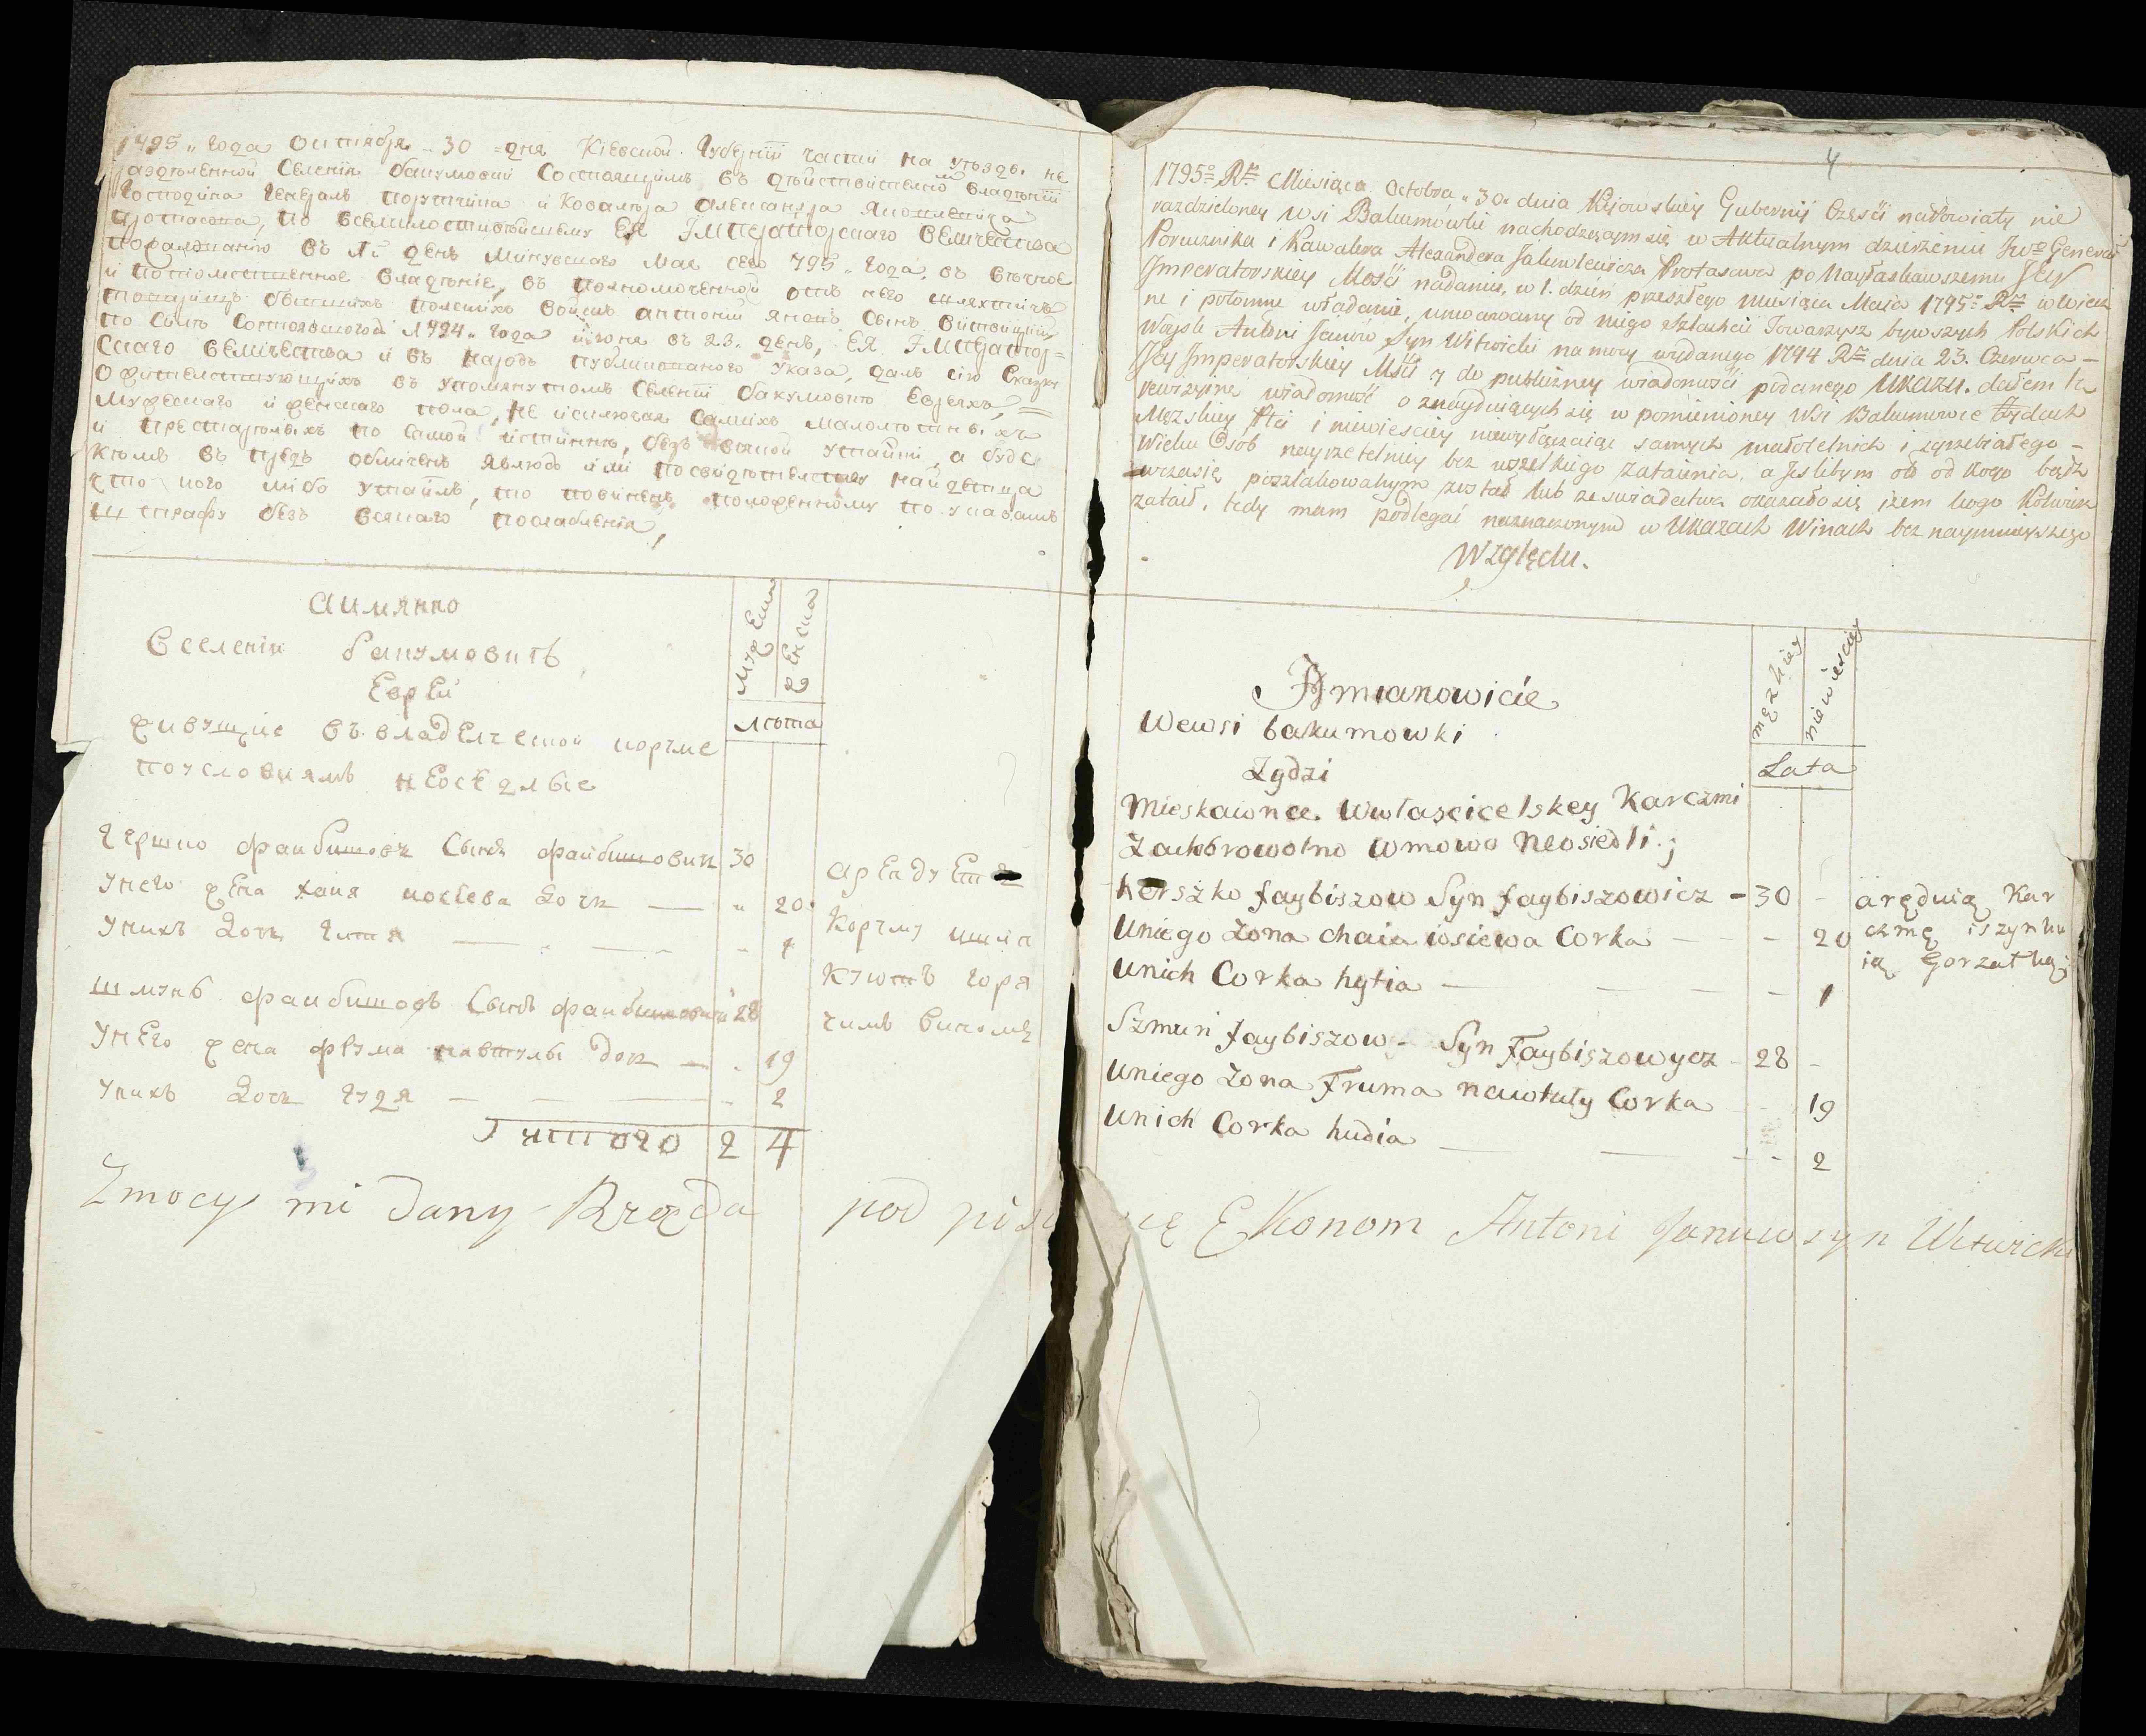 1795„ года Октября „ 30 = дня Кіевской Губерніи части на уѣзды не
раздѣленной Селенія бакумовки Состоящимъ въ дѣйствительномъ владѣніи
Господина Генералъ порутчика и Ковалера Александра Яковлевича
протасова, по всемилостивѣйшему ЕЯ ІМПераторскаго величества
пожалованію въ 1й день Минувшаго Мая сего 795„ года, въ вѣчное
и потомственное владѣніе, въ полномоченной отъ него шляхтичъ
товарищъ бывшихъ полскихъ войскъ антоній яновъ Сынъ витвицкій
по силѣ Состоявшогося 1794„ года июня въ 23. день, ЕЯ ІМПератор=
Скаго величества и въ народъ публикованого Указа, далъ сію Скаску
О дѣтельствующихъ въ упомянутомъ Селеніи бакумовки Евреяхъ,
мужескаго и женскаго пола, не исключая Самыхъ малолѣтныхъ
и престарѣлыхъ по самой истиннѣ, безъ всякой утайки, а буде
кѣмъ въ предь обличенъ явлюсь или по свидѣтельству найдется
что кого либо утаилъ, то повиненъ положенному по указамъ
штрафу безъ всякаго послабленія,
Аимянно
Вселеніи бакумовкѣ
Еврей
живущие въ владелческой корчме
поусловиямъ неоседлые
Мужеска
Женска
29
Лѣта
Гершко файбишовъ Сынъ файбишовичъ 30
Унего жена хаия иосева дочь — „ 20
Унихъ дочь Гитя — — - 1
Шмунь файбишовъ Сынъ файбишовичъ 28
Унего жена фрума навтулы доч — 19
Унихъ дочь Гудя — — — 2
Итого 2 4
арендует
Корчму шин
куютъ горя
чимъ виномъ
Zmocy mi dany Rząda podpisuię się EKonom Antoni Januw syn Witwicki
4
1795º Rº Miesiąca Octobra „ 30„ dnia Kijowskiey Gubernij Części naPowiaty nie
razdzieloney Wsi Bakumowki nachodzącym się w Aktualnym dzierżeniu Jwº Generał
Porucznika i Kawalera Alexandera Jakowlewicza Protasowa po Nayłaskawszemu JEY
Imperatorskiey Mości nadaniu, w 1. dzień przeszłego miesiąca Maia 1795º Rº w Wiecz
ne i potomne władanie, umocowany od niego Szlachcic Towarzysz bywszych Polskich
Woysk Antoni Janów Syn Witwicki na mocy wydanego 1794 Rº dnia 23. Czerwca –
Jey Imperatorskiey Mści y do publiczney wiadomości podanego UKAZU. dałem tę
rewizyiną wiadomość o znaydujących się w pomienioney Wsi Bakumowce Żydach
Męzskiey Płci i niewiesciey niewyłączaiąc samych małoletnich i zgrzebiałego –
Wieku Osob nayrzetelniey bez wszelkiego zataienia, a jeslibym od kogo bądź
zataił, tedy mam podlegać naznaczonym w UKAZACH Winach bez naymnieyszego
Względu.
Amianowicie
Wewsi bakumowki
Żydzi
Mieskaiące Wwłascicelskey Karczmi
Zadobrowolno Umowo Neosiedli;
męzkiey
niewiesciey
Lata
herszko faybiszow Syn faybiszowicz – 30 -
Uniego Zona chaia iosiewa Corka — - 20
Unich Corka hytia — — - 1
Szmun faybiszow – Syn Faybiszowycz - 28 -
Uniego Zona Fruma nawtuly Corka 19
Unich Corka hudia — — - 2
aręduią Kar
czmę iszynku
ią Gorzałką;